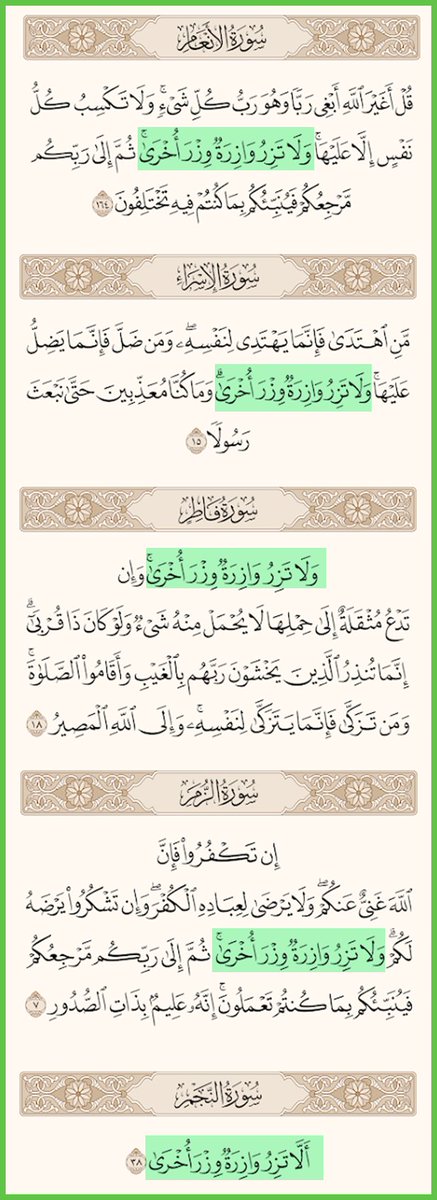 سُورَةُ الأَنْعَامِ
قُلْ أَغَيْرَ ٱللَّهِ أَبْغِى رَبًّا وَهُوَ رَبُّ كُلِّ شَىْءٍ ۚ وَلَا تَكْسِبُ كُلُّ
نَفْسٍ إِلَّا عَلَيْهَا ۚ وَلَا تَزِرُ وَازِرَةٌ وِزْرَ أُخْرَىٰ ۚ ثُمَّ إِلَىٰ رَبِّكُم
مَّرْجِعُكُمْ فَيُنَبِّئُكُم بِمَا كُنتُمْ فِيهِ تَخْتَلِفُونَ ١٦٤
سُورَةُ الإِسْرَاءِ
مَّنِ ٱهْتَدَىٰ فَإِنَّمَا يَهْتَدِى لِنَفْسِهِۦ ۖ وَمَن ضَلَّ فَإِنَّمَا يَضِلُّ
عَلَيْهَا ۚ وَلَا تَزِرُ وَازِرَةٌ وِزْرَ أُخْرَىٰ ۗ وَمَا كُنَّا مُعَذِّبِينَ حَتَّىٰ نَبْعَثَ
رَسُولًا ١٥
سُورَةُ فَاطِرٍ
وَلَا تَزِرُ وَازِرَةٌ وِزْرَ أُخْرَىٰ ۚ وَإِن
تَدْعُ مُثْقَلَةٌ إِلَىٰ حِمْلِهَا لَا يُحْمَلْ مِنْهُ شَىْءٌ وَلَوْ كَانَ ذَا قُرْبَىٰٓ ۗ
إِنَّمَا تُنذِرُ ٱلَّذِينَ يَخْشَوْنَ رَبَّهُم بِٱلْغَيْبِ وَأَقَامُوا۟ ٱلصَّلَوٰةَ ۚ
وَمَن تَزَكَّىٰ فَإِنَّمَا يَتَزَكَّىٰ لِنَفْسِهِۦ ۚ وَإِلَى ٱللَّهِ ٱلْمَصِيرُ ١٨
سُورَةُ الزُّمَرِ
إِن تَكْفُرُوا۟ فَإِنَّ
ٱللَّهَ غَنِىٌّ عَنكُمْ ۖ وَلَا يَرْضَىٰ لِعِبَادِهِ ٱلْكُفْرَ ۖ وَإِن تَشْكُرُوا۟ يَرْضَهُ
لَكُمْ ۗ وَلَا تَزِرُ وَازِرَةٌ وِزْرَ أُخْرَىٰ ۗ ثُمَّ إِلَىٰ رَبِّكُم مَّرْجِعُكُمْ
فَيُنَبِّئُكُم بِمَا كُنتُمْ تَعْمَلُونَ ۚ إِنَّهُۥ عَلِيمٌۢ بِذَاتِ ٱلصُّدُورِ ٧
سُورَةُ النَّجْمِ
أَلَّا تَزِرُ وَازِرَةٌ وِزْرَ أُخْرَىٰ ٣٨